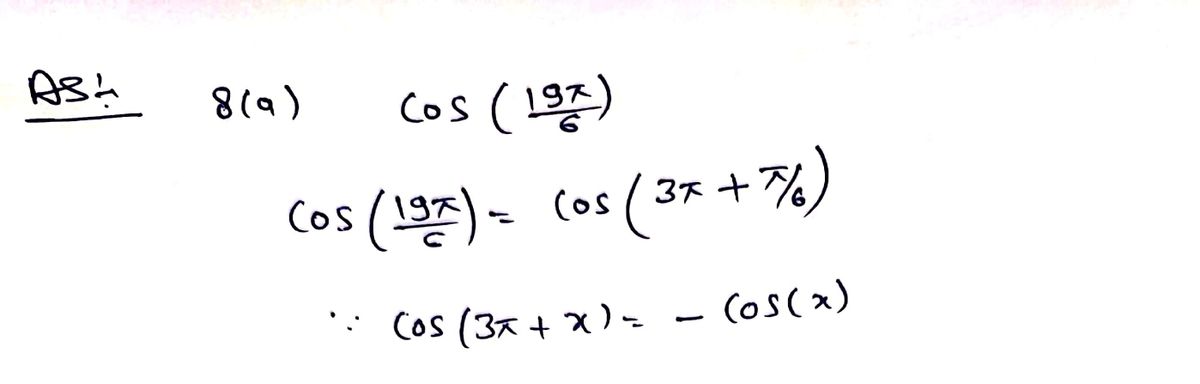 Ans:- 8(a) cos (19π/6)
cos (19π/6) = cos (3π + π/6)
∵ cos (3π + x) = - cos(x)